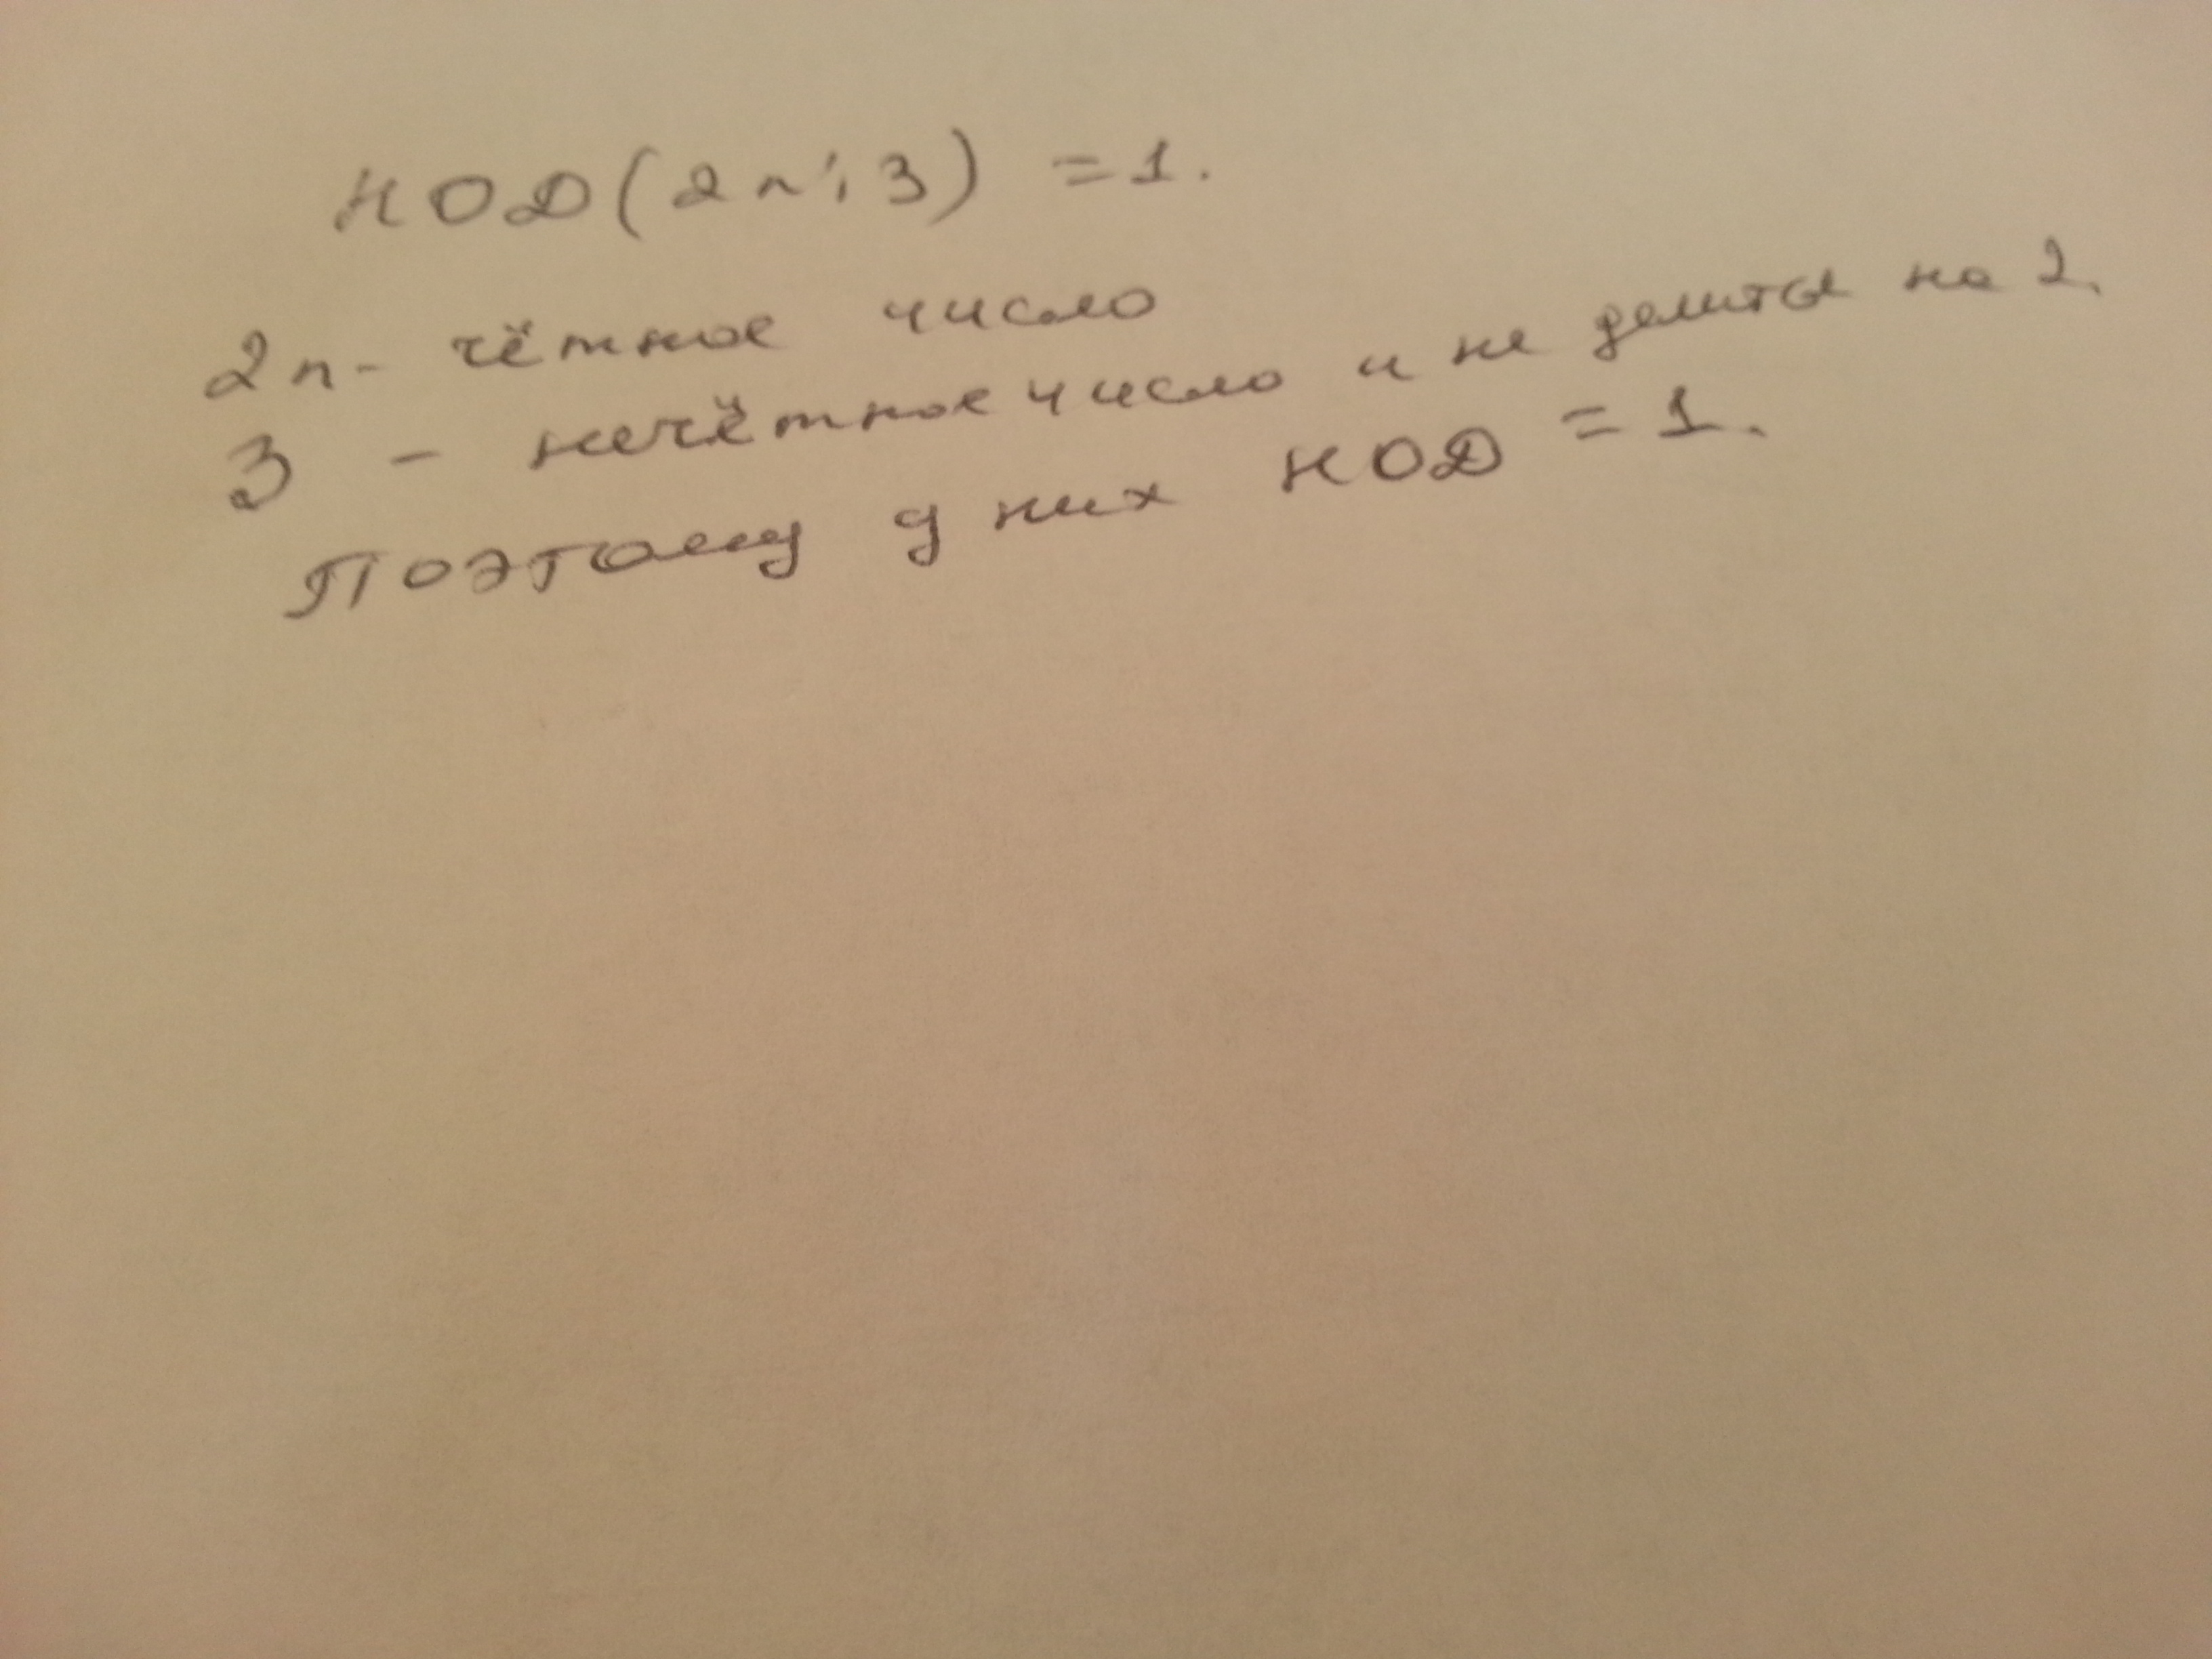 НОД(2n; 3) = 1.
2n - чётное число
3 - нечётное число и не делится на 2.
Поэтому у них НОД = 1.